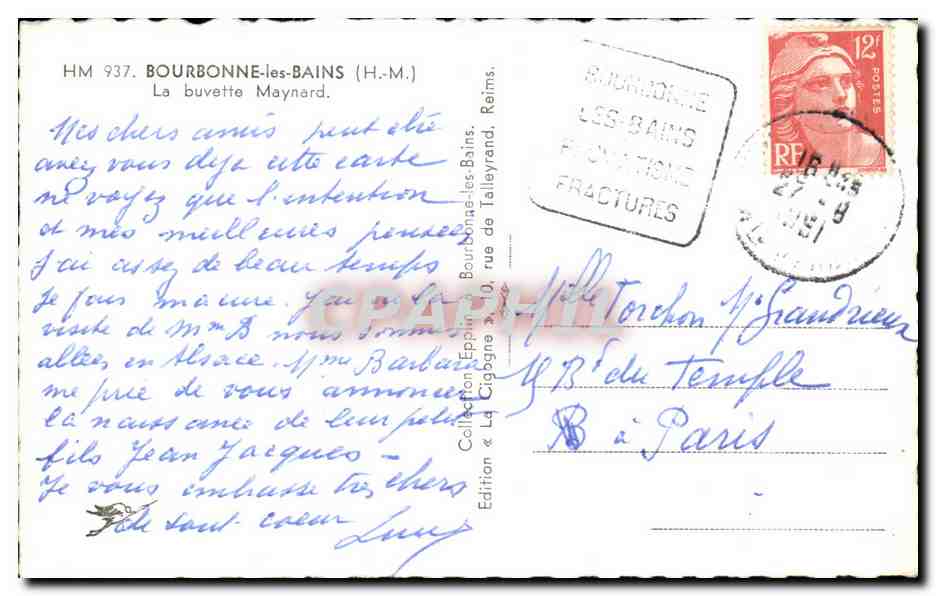 HM 937. BOURBONNE-les-BAINS (H.-M.)
La buvette Maynard.
Mes chers amis peut etre
avez vous deja cette carte
ne voyez que l'intention
et mes meilleures pensées
J'ai assez de beau temps
Je fais ma cure. J'ai eu la
visite de Mme B nous sommes
allées en Alsace. Mme Barbara
me prie de vous annoncer
la naissance de leur petit
fils Jean Jacques -
Je vous embrasse tres chers
de tout coeur
Collection Epplin à Bourbonne-les-Bains.
Edition « La Cigogne », 10, rue de Talleyrand, Reims.
BOURBONNE
LES-BAINS
RHUMATISME
FRACTURES
12F
POSTES
RF
16H
27-8
1951
CPAPHIL
Melle Torchon Mr Grandrieux
19 Bd du Temple
à Paris